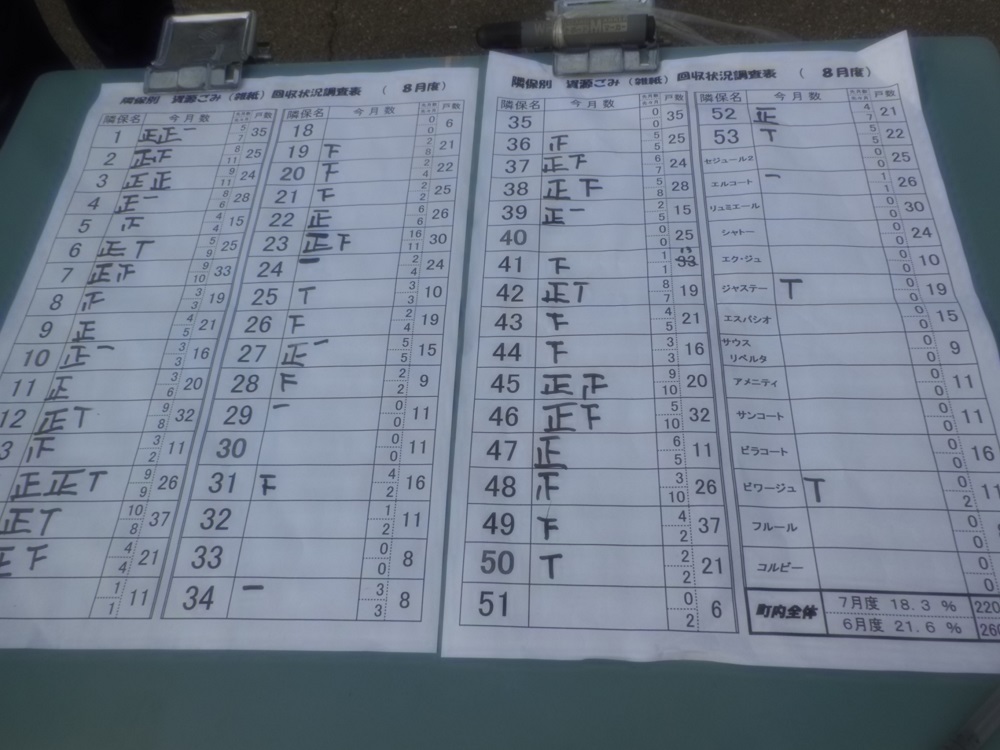 隣保別 資源ごみ（雑紙）回収状況調査表 （ 8月度）
隣保名 今月数 戸数 隣保名 今月数 戸数
1 正正一 5 7 35
2 正下 8 11 25
3 正正 9 11 24
4 正一 8 6 28
5 4 4 15
6 正T 5 9 25
7 正 9 10 33
8 3 3 19
9 正 4 5 21
10 正一 3 3 16
11 正 3 6 20
12 正T 9 8 32
3 3 2 11
正正T 9 9 26
正T 10 8 37
正下 4 4 21
1 1 11
18 0 0 6
19 下 2 8 21
20 下 2 4 22
21 下 2 2 25
22 正 6 6 26
23 正下 16 11 30
24 一 2 4 24
25 T 3 3 10
26 下 2 4 19
27 正一 5 5 15
28 下 2 2 9
29 一 0 0 11
30 0 0 11
31 下 4 2 16
32 1 2 11
33 0 0 8
34 一 3 3 8
隣保別 資源ごみ（雑紙）回収状況調査表 （ 8月度）
隣保名 今月数 戸数 隣保名 今月数 戸数
35 0 0 35
36 5 5 25
37 正下 6 7 24
38 正下 5 8 28
39 正一 2 5 15
40 0 0 25
41 下 1 1 33
42 正T 8 7 19
43 下 4 5 21
44 下 3 3 16
45 正 9 10 20
46 正下 5 10 32
47 正 6 5 11
48 3 10 26
49 下 4 2 37
50 T 2 2 21
51 0 2 6
52 正 4 7 21
53 T 5 5 22
セジュール2 0 0 25
エルコート 一 1 1 26
リュミエール 0 0 30
シャトー 0 0 24
エク・ジュ 0 0 10
ジャステー T 0 0 19
エスパシオ 0 0 15
サウス リベルタ 0 0 9
アメニティ 0 0 11
サンコート 0 0 11
ビラコート 0 0 16
ビワージュ T 0 2 11
フルール 0 0
コルビー 0 0
町内全体 7月度 18.3 % 220
6月度 21.6 % 260